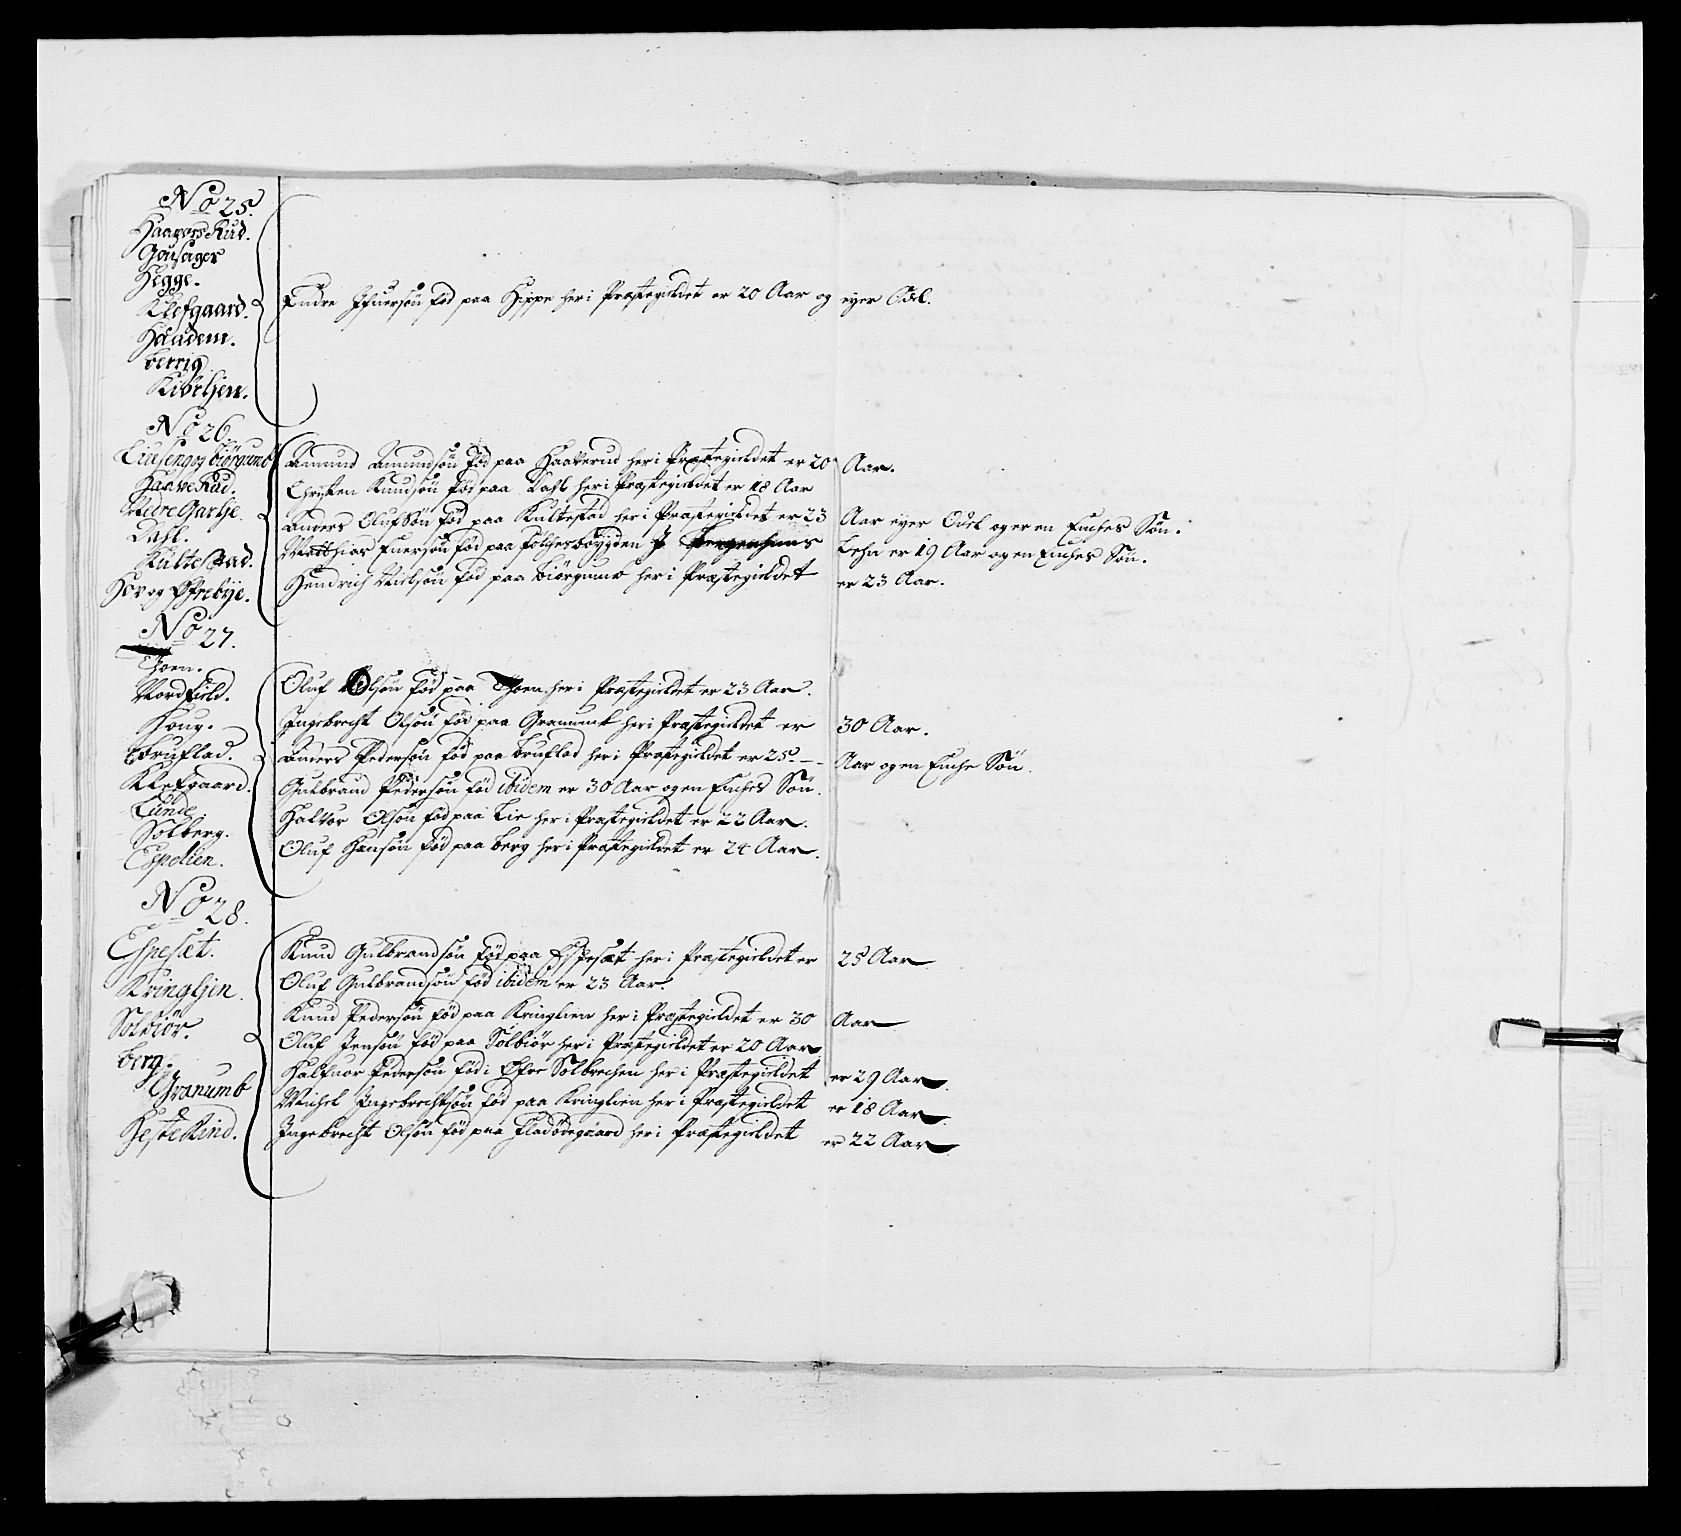 No 25.
Haavors Rud.
Gousager
Hegge.
Klefgaard.
Haadem.
berrig
Kibrljen.
Endre Ifuersøn fød paa Hippe her i Præstegieldet er 20 Aar og eyer Odel.
No 26.
Liusengog biörgumb
Haave Rud.
Nedre Garthje.
Dahl.
Kulte Stad.
Hov og Ofrebÿe.
Amund Amundsøn fød paa Haaverud her i Præstegieldet er 20 Aar.
Christen Knudsøn fød paa Dahl her i Præstegieldet er 18 Aar
Anders Olufsøn fød paa Kultestad her i Præstegieldet er 23 Aar eyer Odel og er en Enches Søn.
Matthias Enersøn fød paa bøygden J Lehn er 19 Aar og en Enches Søn.
Hendrich Nielsøn fød paa biørgumb her i Præstegieldet er 23 Aar.
No 27.
Thoen.
Nordfield.
Houg.
Bruflad.
Klefgaard.
Lunde
Solberg.
Espelien.
Oluf Olsøn fød paa Thoen her i Præstegieldet er 23 Aar.
Ingebrecht Olsøn fød paa Granumb her i Præstegieldet er 30 Aar.
Anders Pedersøn fød paa bruflad her i Præstegieldet er 25 - - Aar og en Enche Søn.
Gulbrand Pedersøn fød ibidem er 30 Aar og en Enches Søn.
Halvor Olsøn fød paa Lie her i Præstegieldet er 22 Aar.
Oluf Hansøn fød paa berg her i Præstegieldet er 24 Aar.
No 28.
Espeset.
Kringljen.
Solbiör.
berg.
Granumb
Heste Kind.
Knud Gulbrandsøn fød paa Espesæt her i Præstegieldet er 25 Aar
Oluf Gulbrandsøn fød ibidem er 23 Aar.
Knud Pedersøn fød paa Kringlien her i Præstegieldet er 30 Aar
Oluf Jensøn fød paa Solbiør her i Præstegieldet er 20 Aar
Halfuor Pedersøn fød i Ofre Solbrechen her i Præstegieldet er 29 Aar.
Michel Ingebrechtsøn fød paa Kringlien her i Præstegieldet er 18 Aar.
Ingebrecht Olsøn fød paa Fladødegaard her i Præstegieldet er 22 Aar.